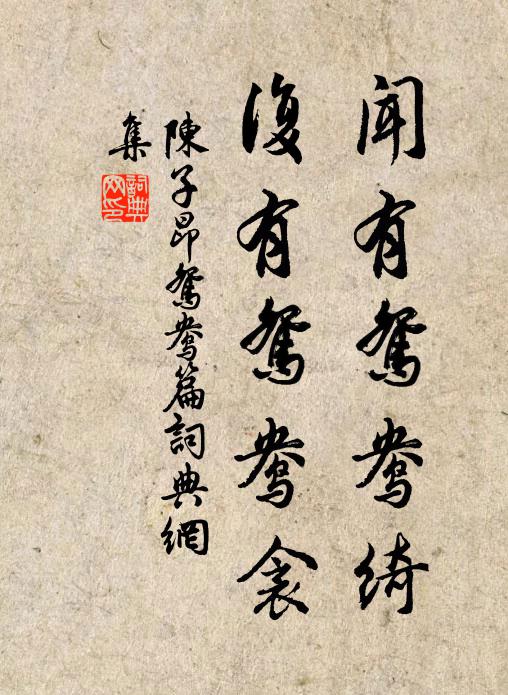 聞有鴛鴦綺
復有鴛鴦衾
陳子昂鴛鴦篇詞典網
集
詞典
网印